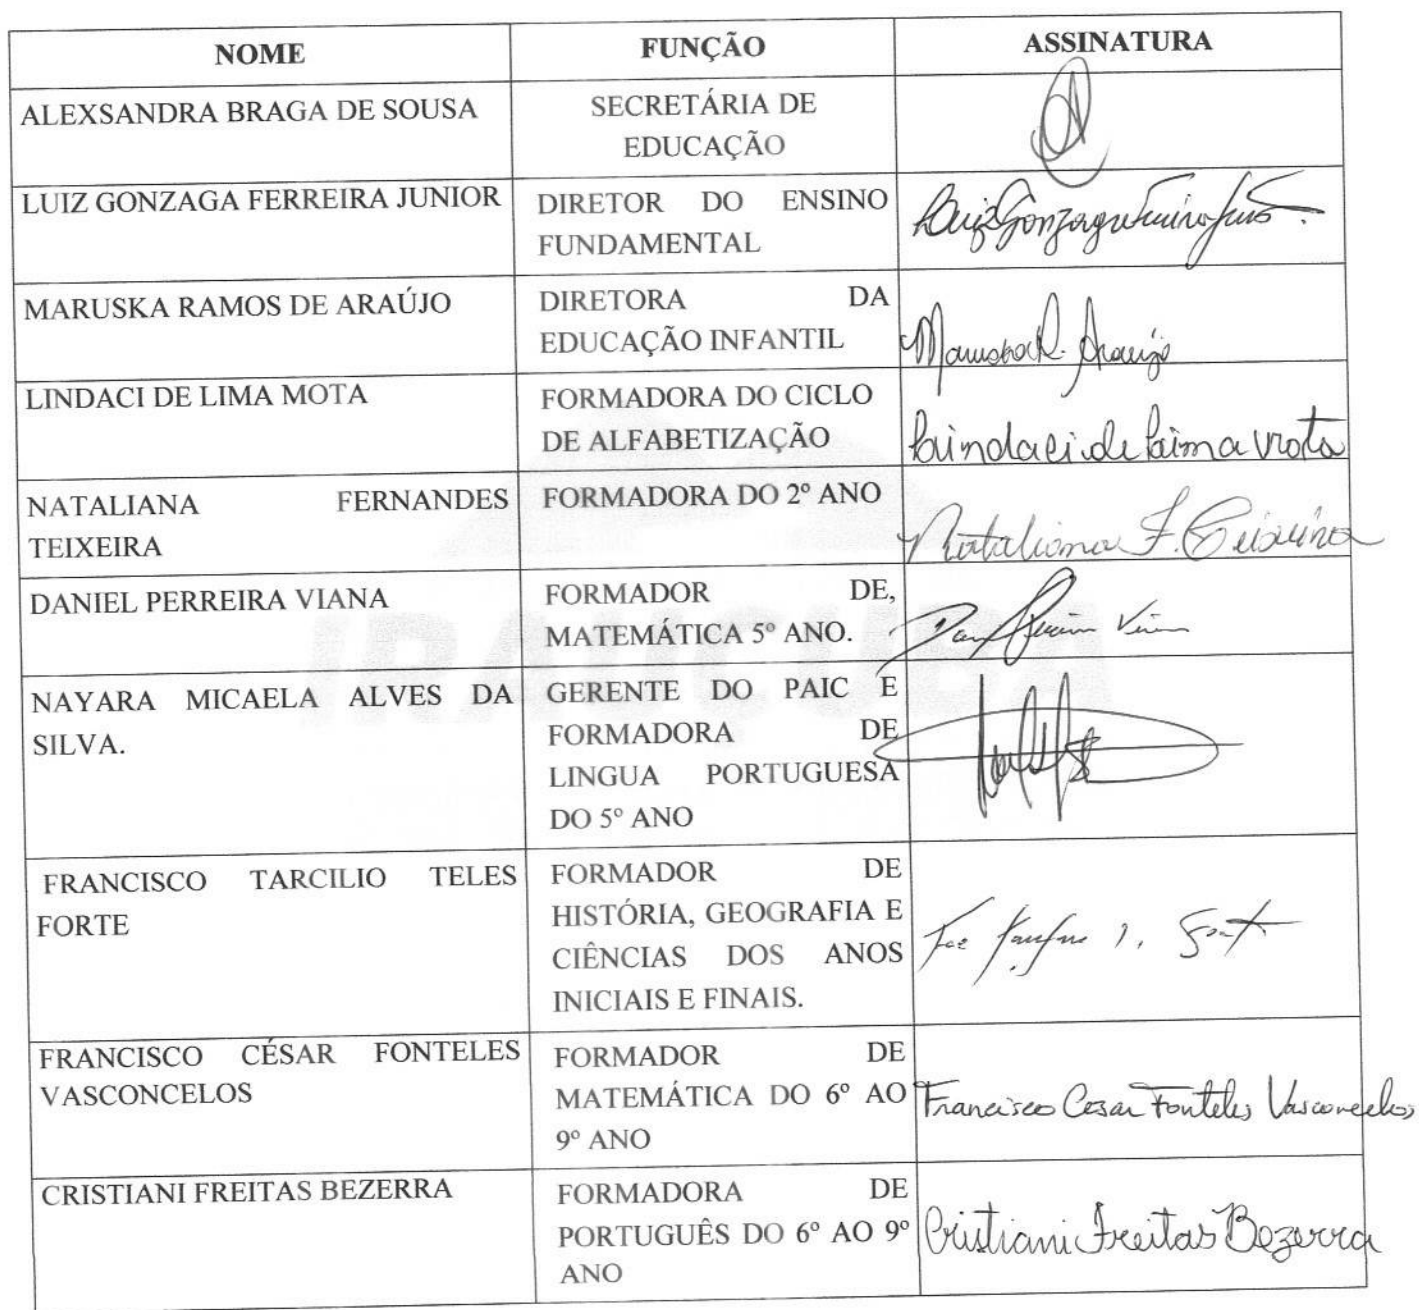 NOME FUNÇÃO ASSINATURA
ALEXSANDRA BRAGA DE SOUSA
SECRETÁRIA DE
EDUCAÇÃO
LUIZ GONZAGA FERREIRA JUNIOR
DIRETOR DO ENSINO
FUNDAMENTAL
Luiz Gonzaga Ferreira Junior
MARUSKA RAMOS DE ARAÚJO
DIRETORA DA
EDUCAÇÃO INFANTIL
Maruska R. Araújo
LINDACI DE LIMA MOTA
FORMADORA DO CICLO
DE ALFABETIZAÇÃO
Lindaci de Lima Mota
NATALIANA FERNANDES
TEIXEIRA
FORMADORA DO 2º ANO
Nataliana F. Teixeira
DANIEL PERREIRA VIANA
FORMADOR DE,
MATEMÁTICA 5º ANO.
IRAUÇUBA
NAYARA MICAELA ALVES DA
SILVA.
GERENTE DO PAIC E
FORMADORA DE
LINGUA PORTUGUESA
DO 5º ANO
FRANCISCO TARCILIO TELES
FORTE
FORMADOR DE
HISTÓRIA, GEOGRAFIA E
CIÊNCIAS DOS ANOS
INICIAIS E FINAIS.
FRANCISCO CÉSAR FONTELES
VASCONCELOS
FORMADOR DE
MATEMÁTICA DO 6º AO
9º ANO
Francisco Cesar Fonteles Vasconcelos
CRISTIANI FREITAS BEZERRA
FORMADORA DE
PORTUGUÊS DO 6º AO 9º
ANO
Cristiani Freitas Bezerra